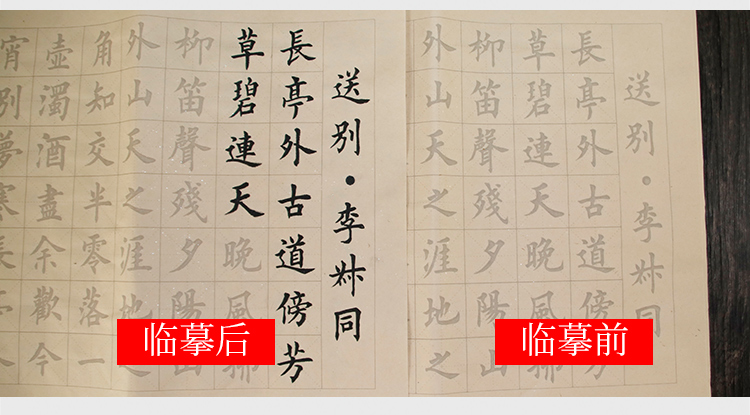 送别·李叔同
長亭外古道傍芳
草碧連天晚風拂
柳笛聲殘夕陽
外山天之涯地之
角知交半零落一
壺濁酒盡余歡今
宵别夢寒長
临摹后
送别·李叔同
長亭外古道傍芳
草碧連天晚風拂
柳笛聲殘夕陽山
外山天之涯地之
临摹前